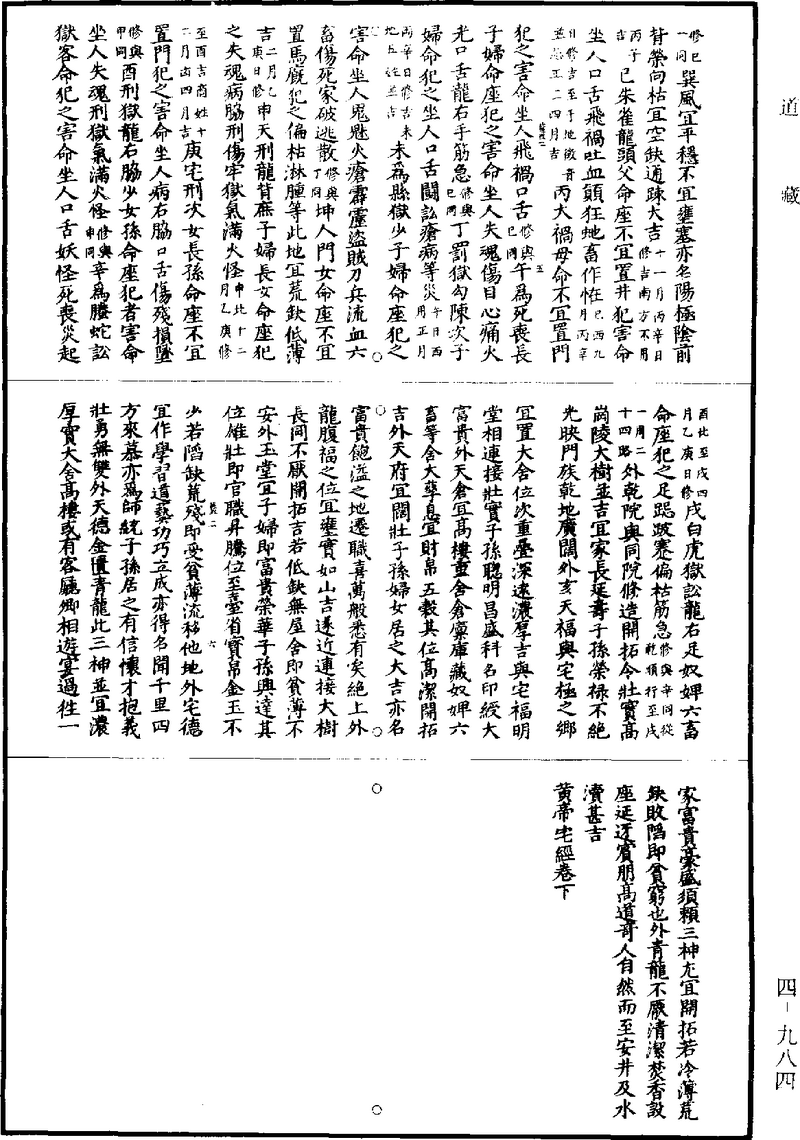 道藏
四-九八四
一同 修巳
巽風宜平穩不宜壅塞亦名陽極陰前
背榮向枯宜空缺通疎大吉 十一月丙辛日 修吉南方不用
丙子 吉
巳朱雀龍頭父命座不宜置井犯害命
坐人口舌飛禍吐血顛狂地畜作怪 巳酉九 月丙辛
日修吉至子地徵音 並忌正二四月吉
丙大禍母命不宜置門
犯之害命坐人飛禍口舌 修與 巳同
午為死喪長
子婦命座犯之害命坐人失魂傷目心痛火
光口舌龍右手筋急 修與 巳同
丁罰獄勾陳次子
婦命犯之坐人口舌鬪訟瘡病等災 辛日酉 用正月
丙辛日修吉未 地五姓並吉
未為縣獄少子婦命座犯之
害命坐人鬼魅火瘡霹靂盜賊刀兵流血六
畜傷死家破逃散 修與 丁同
坤人門女命座不宜
置馬廐犯之偏枯淋腫等此地宜荒缺低薄
吉 二月乙 庚日修
申天刑龍背庶子婦長女命座犯
之失魂病脇刑傷牢獄氣滿火怪 申北十二 月乙庚修
至酉吉商姓十 二月酉四月吉
庚宅刑次女長孫命座不宜
置門犯之害命坐人病右脇口舌傷殘損墜
修與 申同
酉刑獄龍右脇少女孫命座犯者害命
坐人失魂刑獄氣滿火怪 修與 申同
辛為螣蛇訟
獄客命犯之害命坐人口舌妖怪死喪災起
酉北至戌四 月乙庚日修
戌白虎獄訟龍右足奴婢六畜
命座犯之足跽跛蹇偏枯筋急 修與辛同從 乾順行至戌
一周二 十四路
外乾院與同院修造開拓令壯實高
崗陵大樹並吉宜家長延壽子孫榮祿不絕
光映門族乾地廣闊外亥天福與宅極之鄉
宜置大舍位次重疊深遠濃厚吉與宅福明
堂相連接壯實子孫聰明昌盛科名印綬大
富貴外天倉宜高樓重舍倉廩庫藏奴婢六
畜等舍大孳息宜財帛五穀其位高潔開拓
吉外天府宜闊壯子孫婦女居之大吉亦名
富貴飽溢之地遷職喜萬般悉有矣絕上外
龍腹福之位宜壅實如山吉遠近連接大樹
長岡不厭開拓吉若低缺無屋舍即貧薄不
安外玉堂宜子婦即富貴榮華子孫興達其
位雄壯即官職昇騰位至臺省寶帛金玉不
少若陷缺荒殘即受貧薄流移他地外宅德
宜作學習道藝功巧立成亦得名聞千里四
方來慕亦為師統子孫居之有信懷才抱義
壯勇無雙外天德金匱青龍此三神並宜濃
厚實大舍高樓或有客廳卿相遊宴過往一
家富貴豪盛須賴三神尤宜開拓若冷薄荒
缺敗陷即貧窮也外青龍不厭清潔焚香設
座延迓賓朋高道奇人自然而至安井及水
瀆甚吉
黃帝宅經卷下